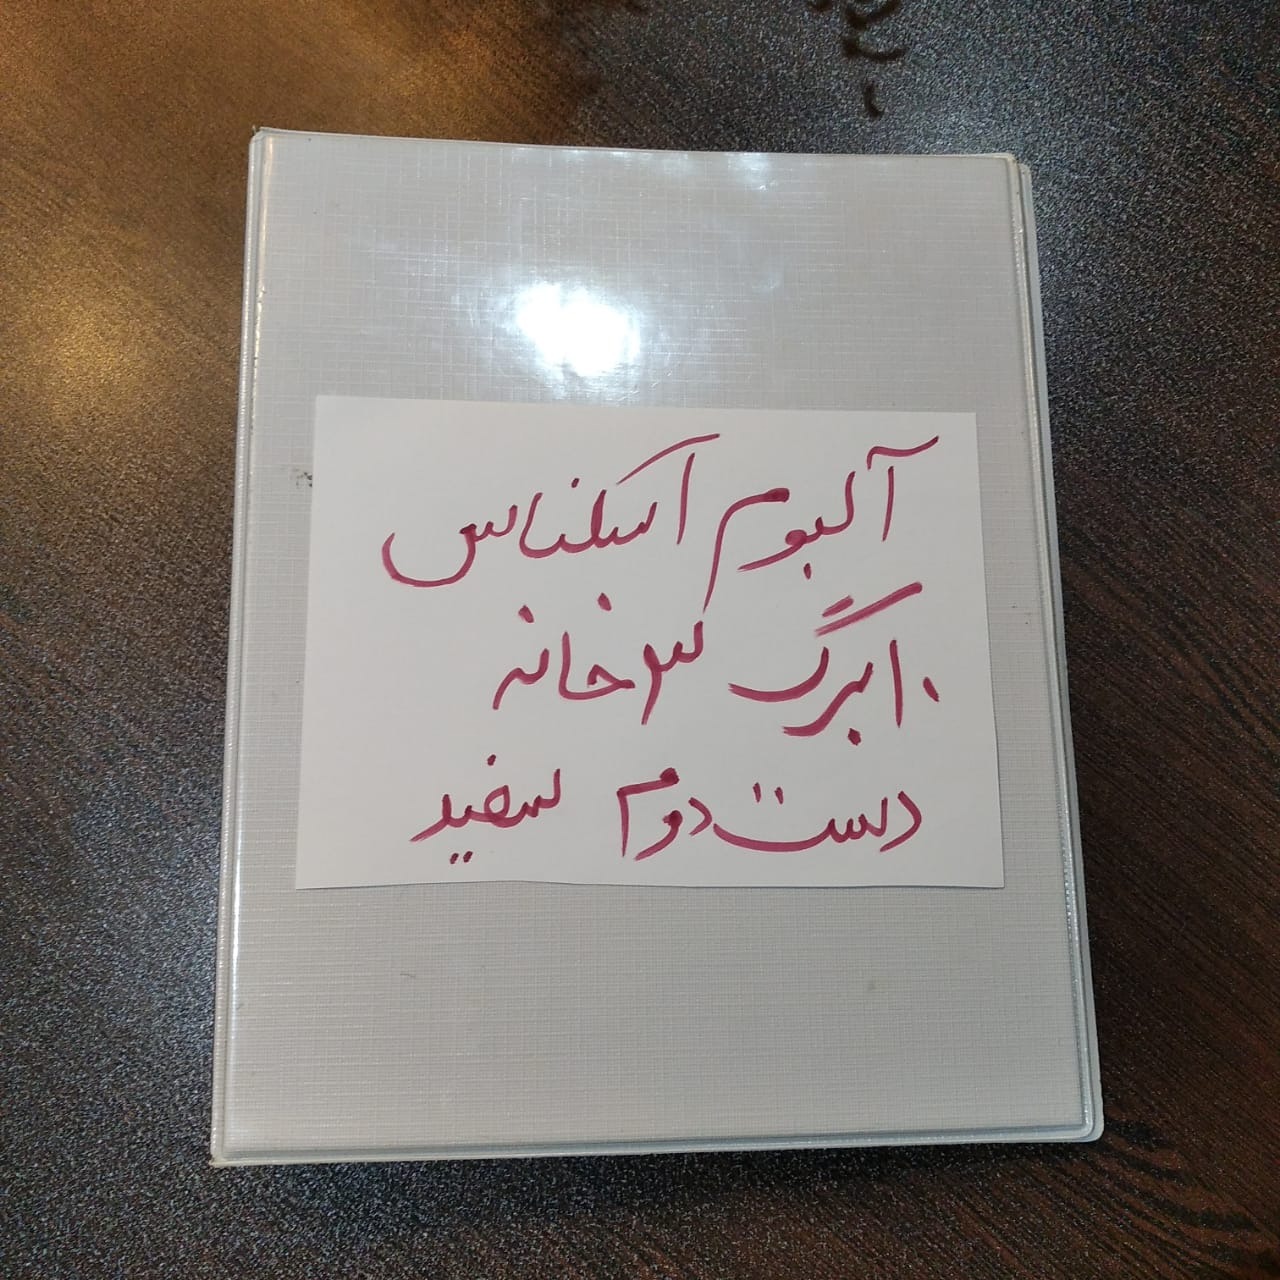 آلبوم اسکناس
۱۰ برگ ۳ خانه
دست دوم سفید